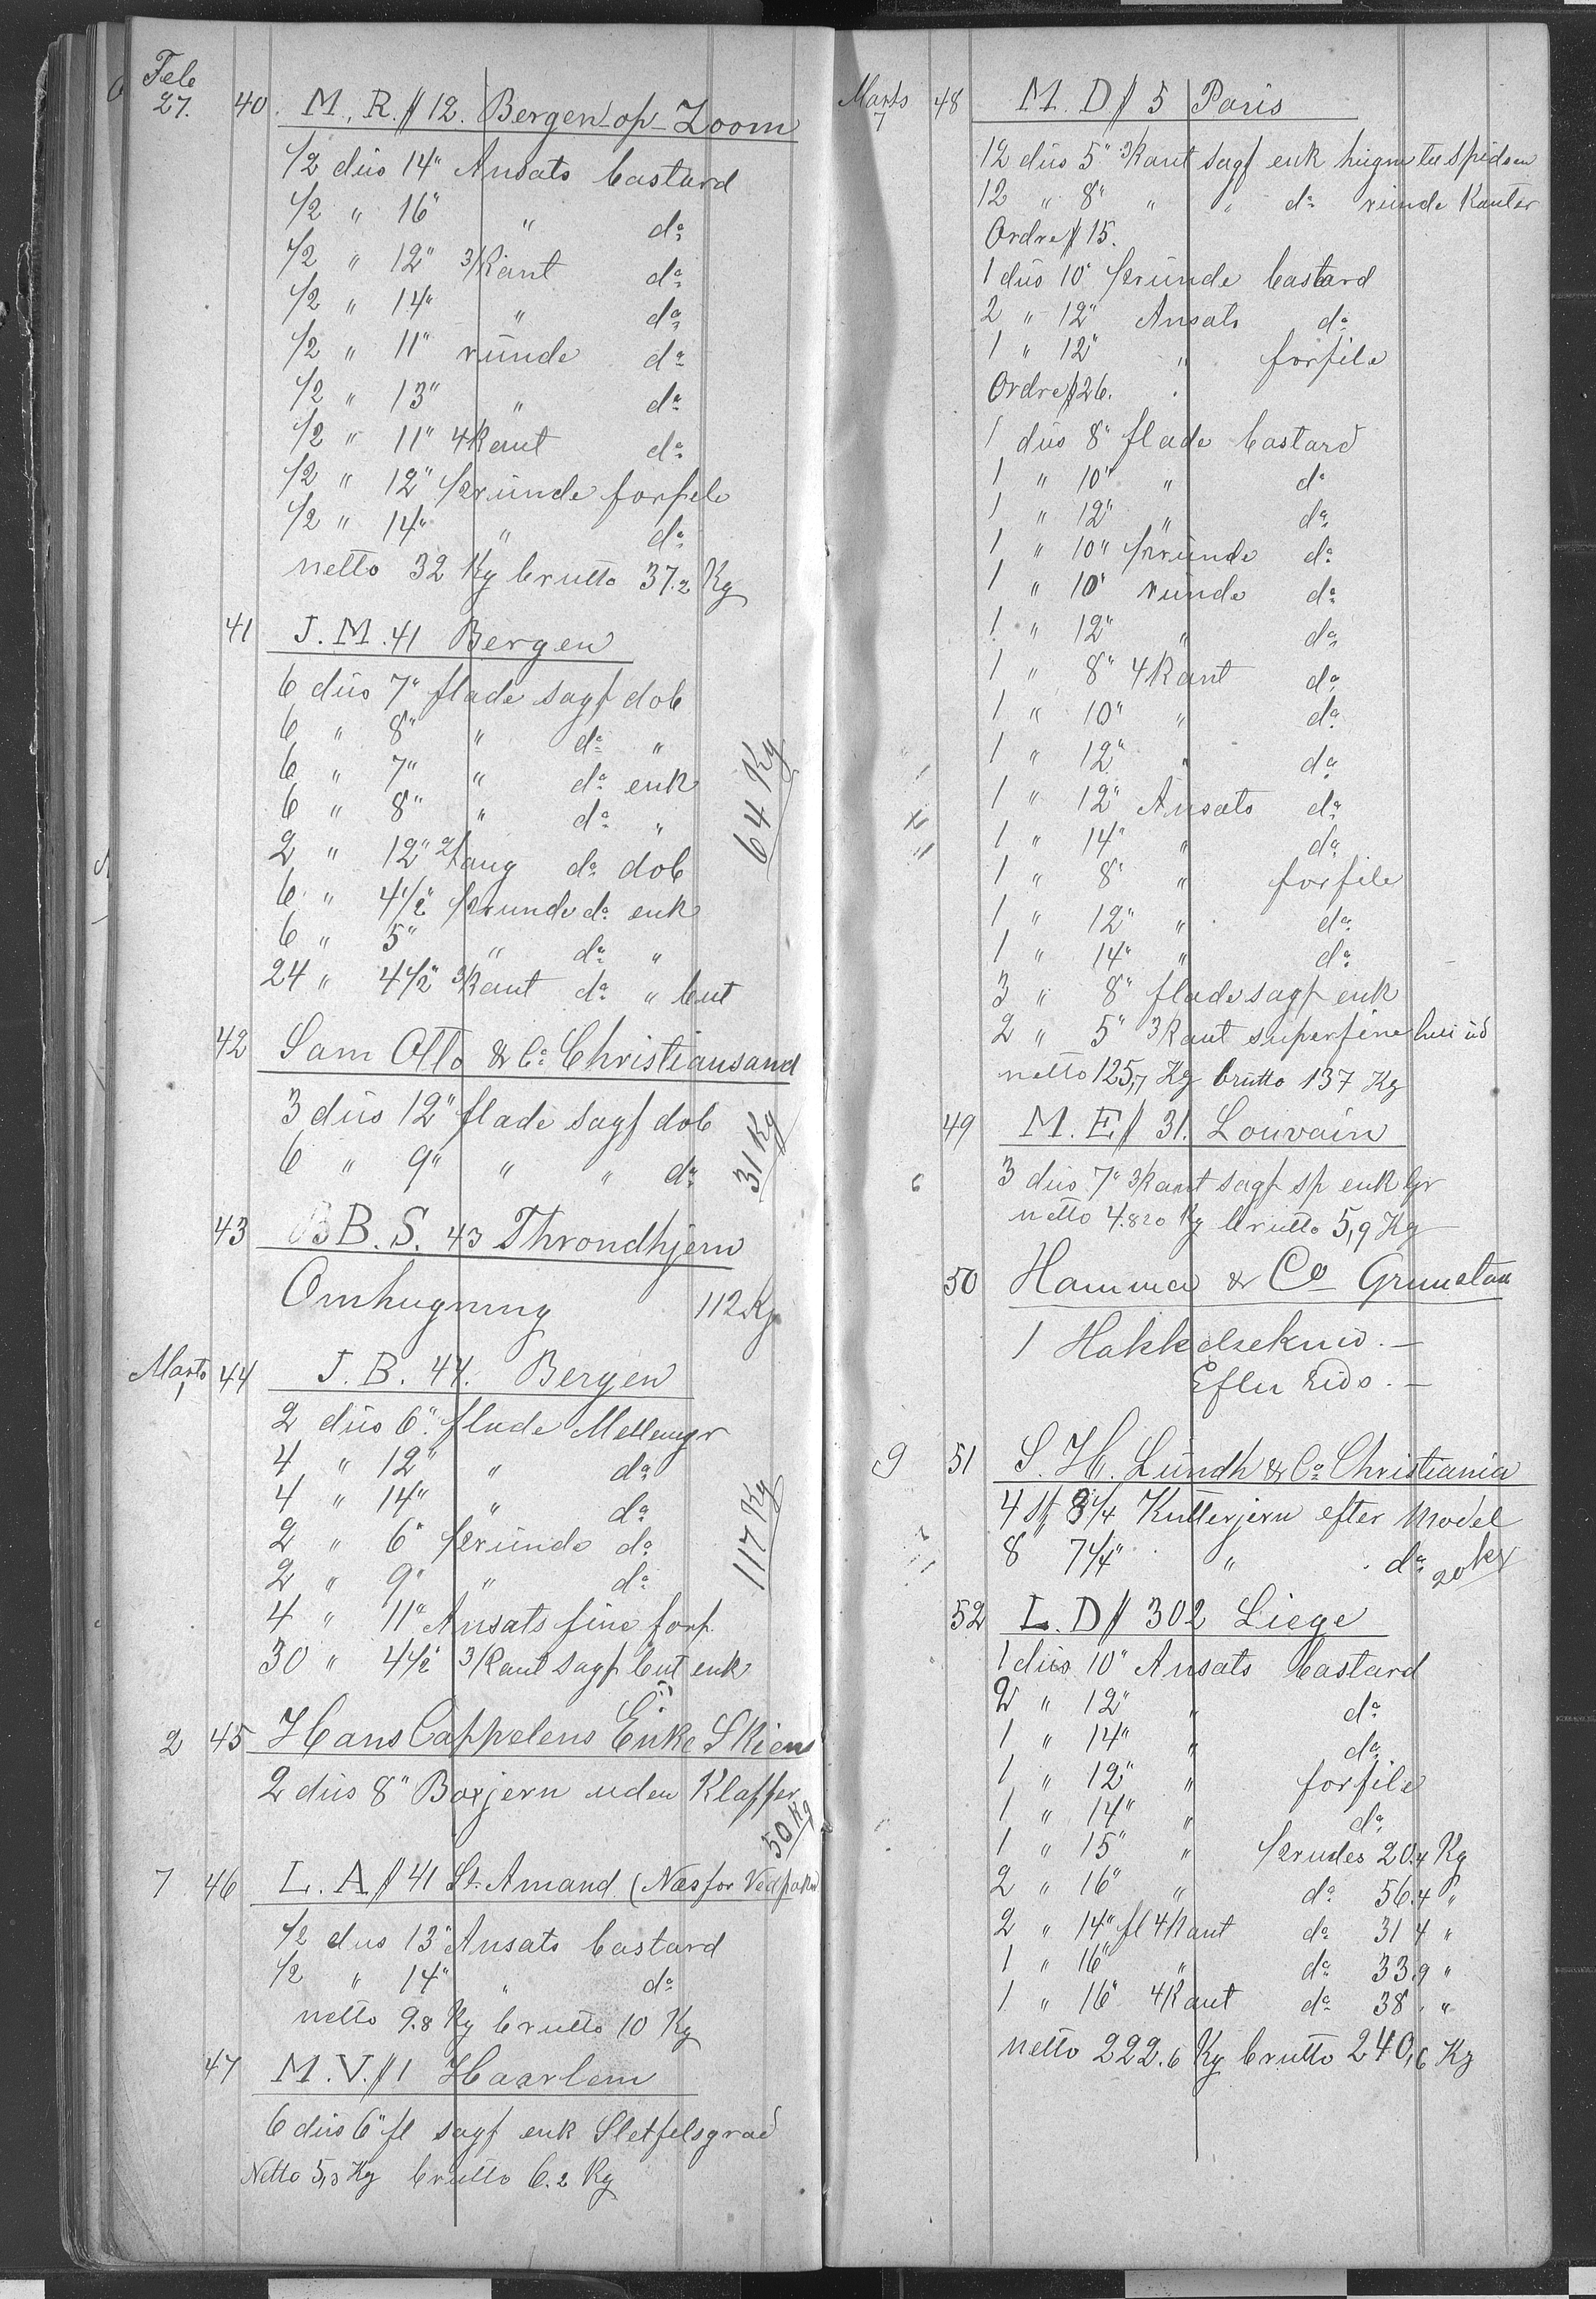 Feb
27. 40. M. R. # 12. Bergen-op-Zoom
1/2 düs 14" Ansats bastard
1/2 " 16" " do
1/2 " 12" 3/Kant do
1/2 " 14" " do
1/2 " 11" ründe do
1/2 " 13" " do
1/2 " 11" 4Kant do
1/2 " 12" 1/2ründe forfile
1/2 " 14" " do
netto 32 Kg brutto 37.2 Kg
41 J. M. 41 Bergen
6 düs 7" flade sagf dob
6 " 8" " do "
6 " 7" " do enk
6 " 8" " do "
2 " 12" 2/tang do dob
6 " 4 1/2" 1/2runde do enk
6 " 5" " do "
24 " 4 1/2" 3/Kant do " but
64 Kg
42 Sam Otto & Co Christiansand
3 düs 12" flade sagf dob
6 " 9" " " do
31 Kg
43 B. S. 43 Throndhjem
Omhugning 112 Kg
Marts
1 44 J. B. 44. Bergen
2 düs 6" flade Mellemgr
4 " 12" " do
4 " 14" " do
2 " 6" 1/2ründe do
2 " 9" " do
4 " 11" Ansats fine forf.
30 " 4 1/2" 3/Kant sagf but enk
117 Kg
2 45 Hans Cappelens Enke Skien
2 düs 8" Boxjern uden Klaffer
50 Kg
7 46 L. A # 41 St. Amand (Næs for
1/2 dus 13" Ansats bastard
1/2 " 14" " do
netto 9.8 Kg brutto 10 Kg
47 M. V. # 1 Haarlem
6 düs 6" fl sagf enk Sletfilsgrad
Netto 5,3 Kg brutto 6.2 Kg
Marts
7 48 M. D # 5 Paris
12 düs 5" 3Kant sagf enk hugne til spidsen
12 " 8" " " do runde Kanter
Ordre # 15.
1 düs 10" 1/2ründe bastard
2 " 12" Ansats do
1 " 12" " forfile
Ordre # 26.
1 düs 8" flade bastard
1 " 10" " do
1 " 12" " do
1 " 10" 1/2ründe do
1 " 10" ründe do
1 " 12" " do
1 " 8" 4Kant do
1 " 10" " do
1 " 12" " do
1 " 12" Ansats do
1 " 14" " do
1 " 8" " forfile
1 " 12" " do
1 " 14" " do
3 " 8" flade sagf enk
2 " 5" 3Kant superfine
netto 125,7 Kg brütto 137 Kg
49 M. E # 31. Louvain
3 düs 7" 3/Kant sagf sp enk Gr
netto 4.820 Kg brutto 5,9 Kg
50 Hammer & Co Grimstad
1 Hakkelsekniv. —
Efter Rids. —
9 51 S. H. Lündh & Co Christiania
4 St 8 1/4 Kutterjern efter Model
8 7 1/4" " do 20 Kg
52 L. D # 302 Liege
1 düs 10" Ansats bastard
2 " 12" " do
1 " 14" " do
1 " 12" " forfile
1 " 14" " do
1 " 15" " 1/2rudes 20.4 Kg
2 " 16" " do 56.4 "
2 " 14" fl 4Kant do 31 4 "
1 " 16" " do 33.9 "
1 " 16" 4Kant do 38. "
netto 222.6 Kg brutto 240,6 Kg